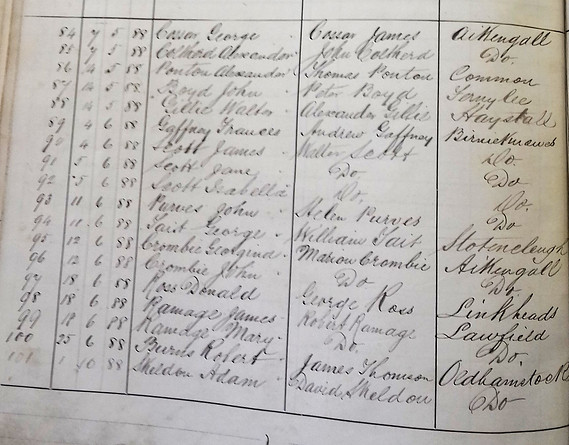 84 7 5 88 Cossar George Cossar James Aikengall
85 7 5 88 Cotherd Alexander John Cotherd Do.
86 14 5 88 Ponton Alexander Thomas Ponton Common
87 14 5 88 Boyd John Peter Boyd
88 14 5 88 Gillie Walter Alexander Gillie Haystall
89 4 6 88 Gaffney Frances Andrew Gaffney Birnieknowes
90 4 6 88 Scott James Walter Scott Do
91 5 6 88 Scott Jane Do Do
92 5 6 88 Scott Isabella Do. Do.
93 11 6 88 Purves John Helen Purves Do
94 11 6 88 Tait George William Tait Stotencleugh
95 12 6 88 Crombie Georgina Marion Crombie Aikengall
96 12 6 88 Crombie John Do Do
97 18 6 88 Ross Donald George Ross Linkheads
98 18 6 88 Ramage James Robert Ramage Lawfield
99 18 6 88 Ramage Mary Do. Do
100 25 6 88 Burns Robert James Thomson Oldhamstocks
101 1 10 88 Sheldon Adam David Sheldon Do